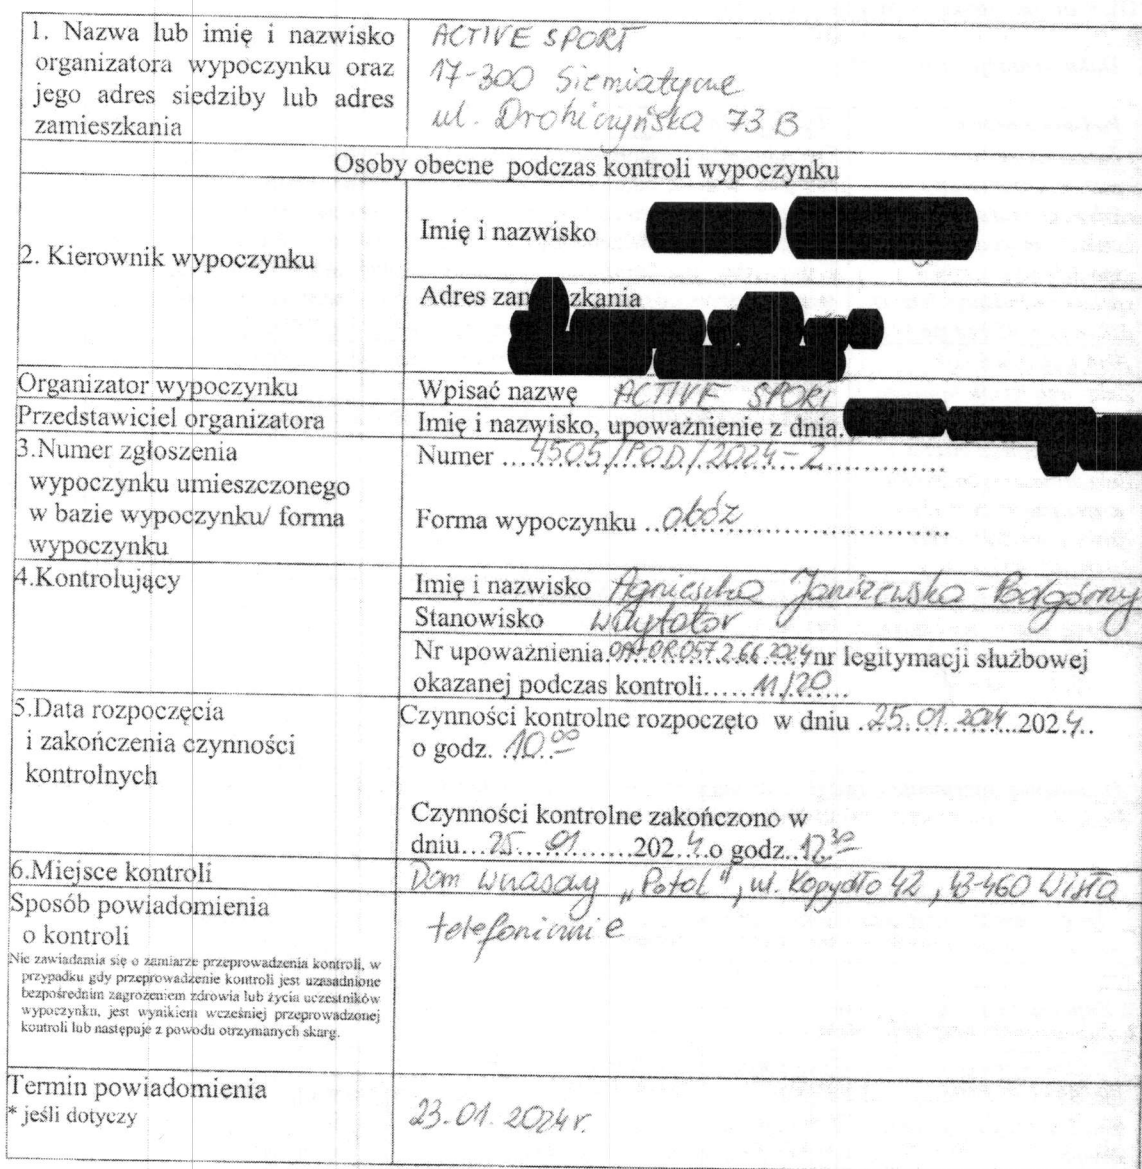 1. Nazwa lub imię i nazwisko
organizatora wypoczynku oraz
jego adres siedziby lub adres
zamieszkania
ACTIVE SPORT
17-300 Siemiatycze
ul. Drohiczyńska 73 B
Osoby obecne podczas kontroli wypoczynku
2. Kierownik wypoczynku
Imię i nazwisko
Adres zam zkania
Organizator wypoczynku
Wpisać nazwę ACTIVE SPORT
Przedstawiciel organizatora
Imię i nazwisko, upoważnienie z dnia.
3.Numer zgłoszenia
wypoczynku umieszczonego
w bazie wypoczynku/ forma
wypoczynku
Numer ...4505/POD/2024-Z...............
Forma wypoczynku ..obóz.....................
4.Kontrolujący
Imię i nazwisko Agnieszka Janiszewska-Podgórny
Stanowisko wizytator
Nr upoważnienia.OA-OR.057.2.66.2024 nr legitymacji służbowej
okazanej podczas kontroli.....11/20...
5.Data rozpoczęcia
i zakończenia czynności
kontrolnych
Czynności kontrolne rozpoczęto w dniu .25.01.2024..202.4..
o godz. .10.00
Czynności kontrolne zakończono w
dniu...25...01.........202.4.o godz..12.30
6.Miejsce kontroli
Dom wczasowy „Potok", ul. Kopydło 42, 43-460 Wisła
Sposób powiadomienia
o kontroli
Nie zawiadamia się o zamiarze przeprowadzenia kontroli, w
przypadku gdy przeprowadzenie kontroli jest uzasadnione
bezpośrednim zagrożeniem zdrowia lub życia uczestników
wypoczynku, jest wynikiem wcześniej przeprowadzonej
kontroli lub następuje z powodu otrzymanych skarg.
telefonicznie
Termin powiadomienia
* jeśli dotyczy
23.01.2024 r.